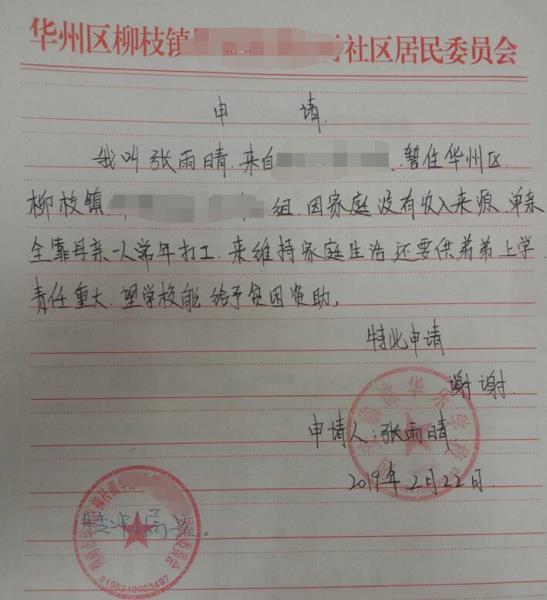 华州区柳枝镇 社区居民委员会
申 请
我叫张雨晴.来自 .暂住华州区
柳枝镇 组.因家庭没有收入来源.单亲
全靠母亲一人常年打工.来维持家庭生活还要供弟弟上学
责任重大.望学校能给予贫困资助。
特此申请
谢谢.
申请人:张雨晴
2019年2月22日.
华乐学校
6105210003497